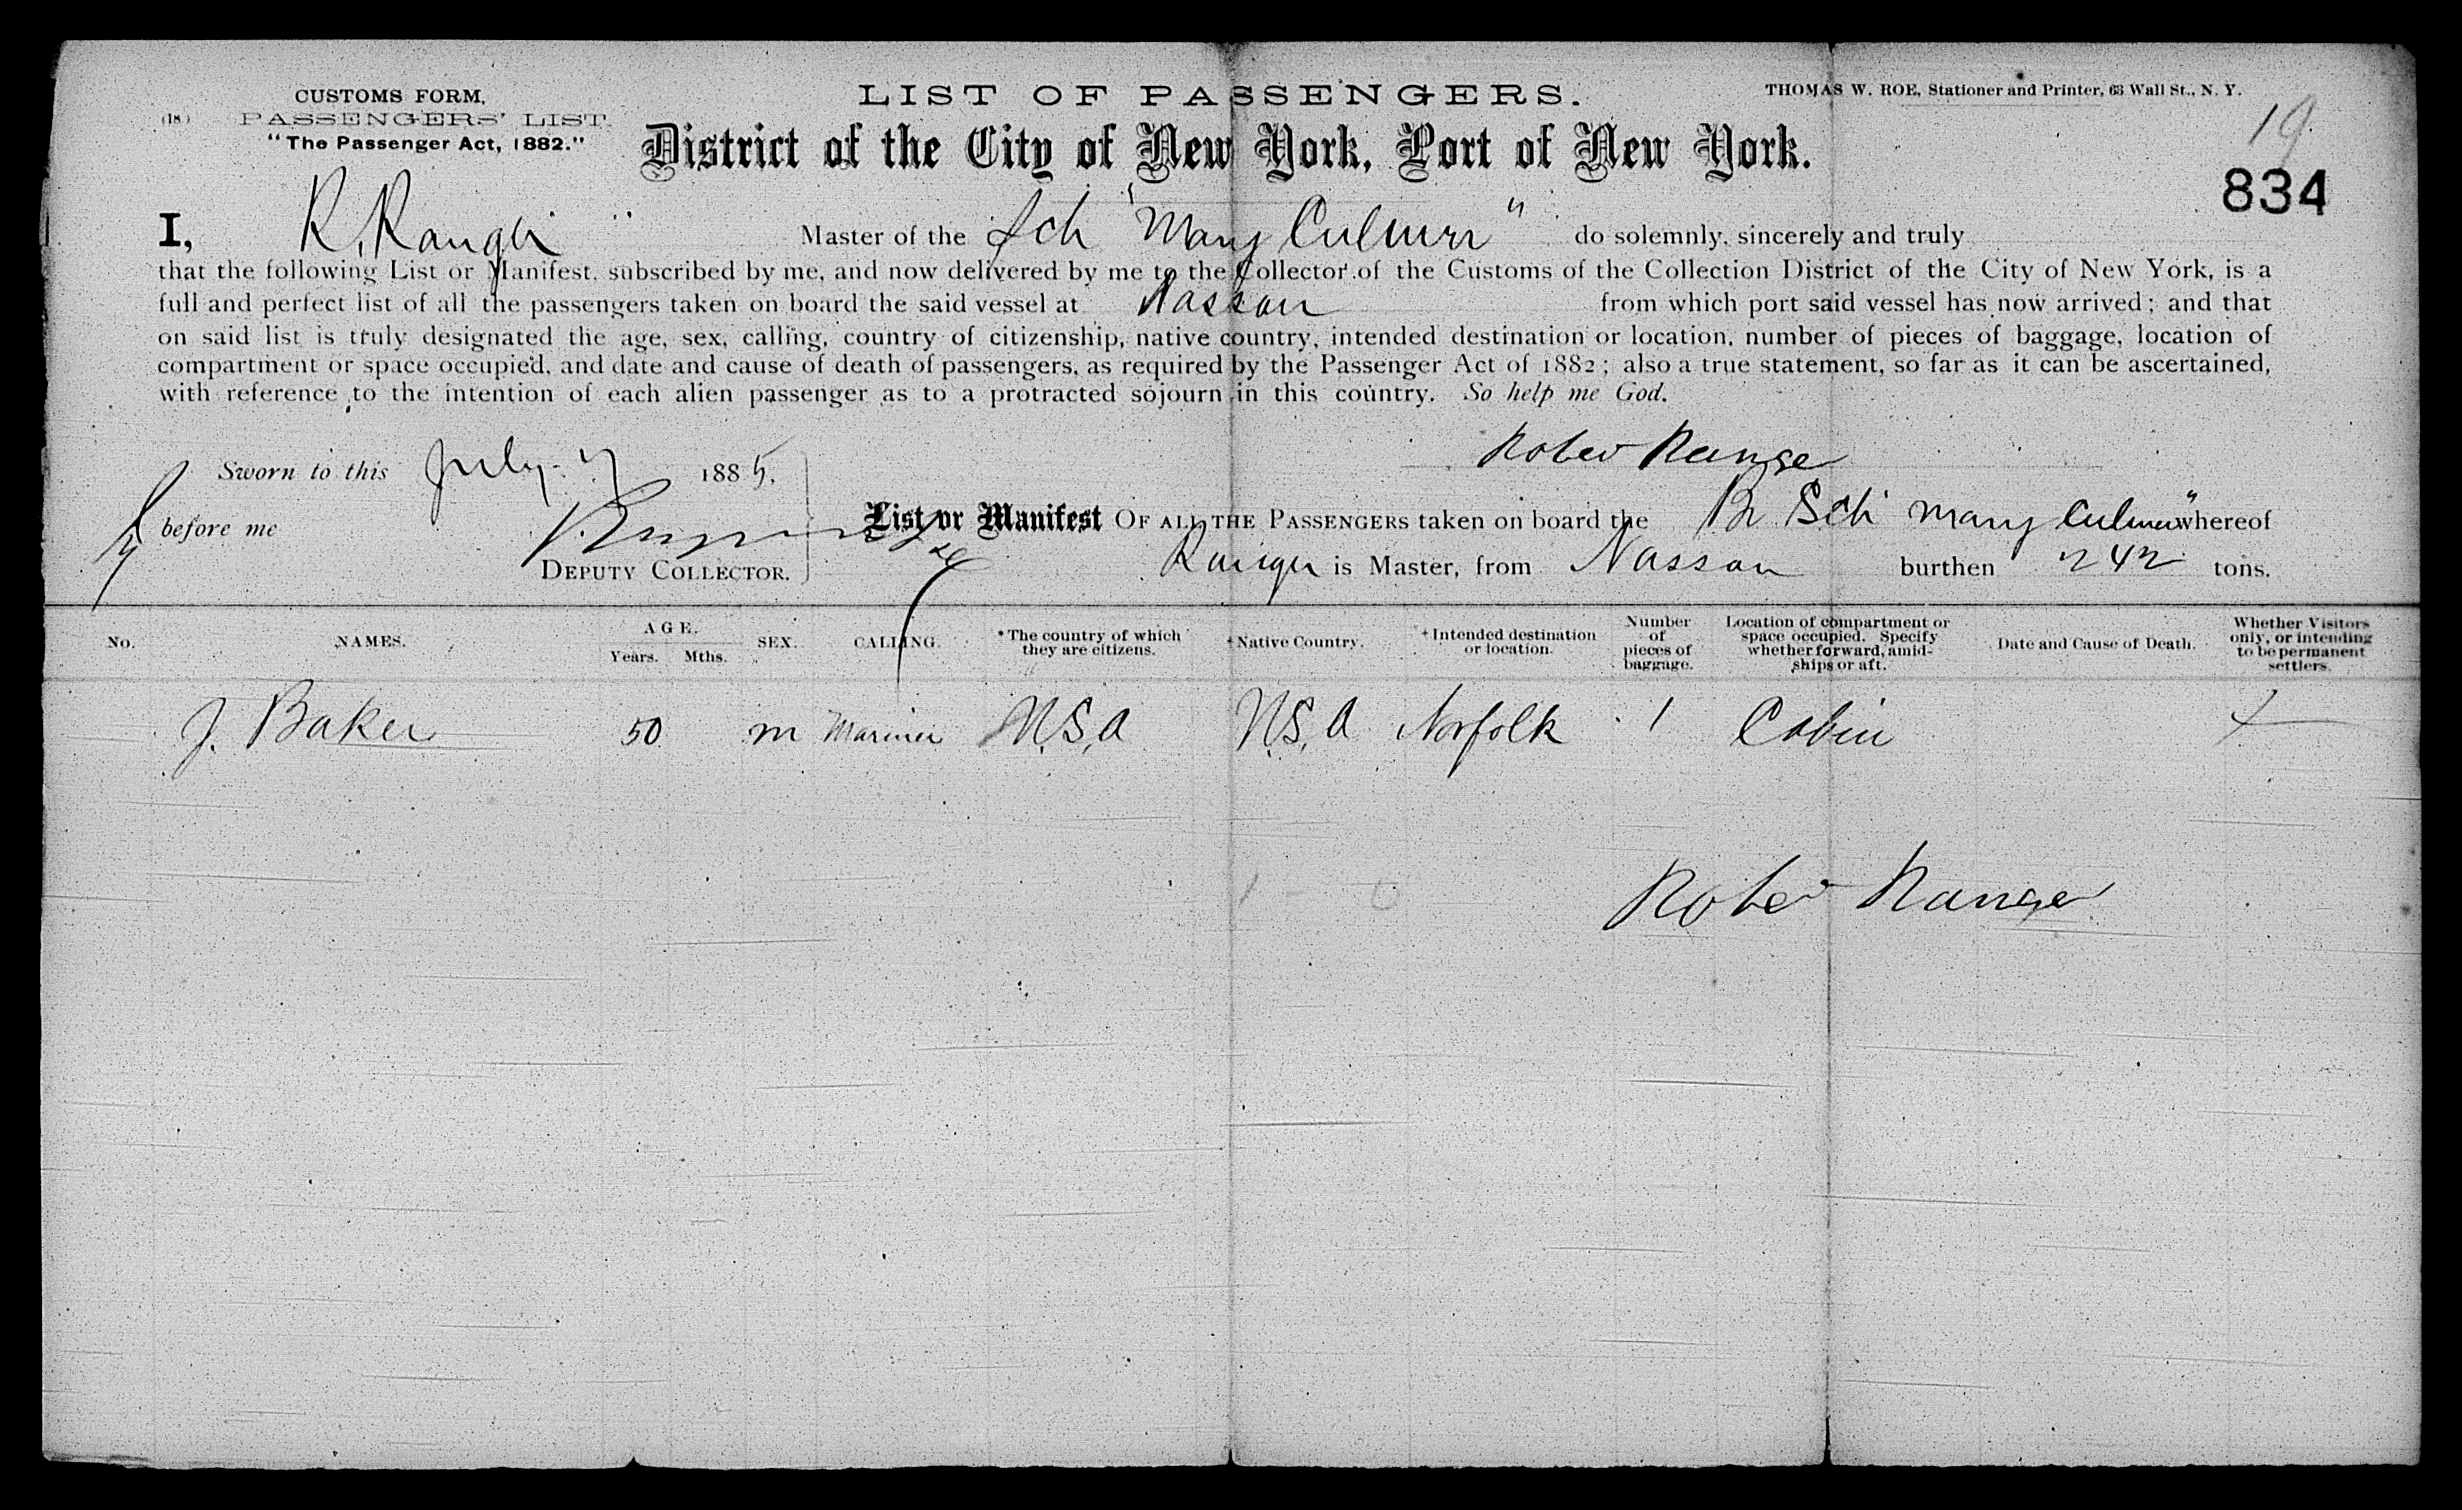 CUSTOMS FORM,
(18) PASSENGERS' LIST.
"The Passenger Act, 1882."
LIST OF PASSENGERS.
THOMAS W. ROE, Stationer and Printer, 63 Wall St., N. Y.
19
District of the City of New York, Port of New York.
834
I, R. Ranger Master of the Sch "Mary Culmer" do solemnly, sincerely and truly
that the following List or Manifest, subscribed by me, and now delivered by me to the Collector of the Customs of the Collection District of the City of New York, is a
full and perfect list of all the passengers taken on board the said vessel at Nassau from which port said vessel has now arrived; and that
on said list is truly designated the age, sex, calling, country of citizenship, native country, intended destination or location, number of pieces of baggage, location of
compartment or space occupied, and date and cause of death of passengers, as required by the Passenger Act of 1882; also a true statement, so far as it can be ascertained,
with reference to the intention of each alien passenger as to a protracted sojourn in this country. So help me God.
Sworn to this July 7 1885, Rober Ranger
before me
DEPUTY COLLECTOR.
List or Manifest OF ALL THE PASSENGERS taken on board the Br Sch Mary Culmer" whereof
Ranger is Master, from Nassau burthen 242 tons.
No. NAMES. AGE. Years. Mths. SEX. CALLING. *The country of which they are citizens. +Native Country. +Intended destination or location. Number of pieces of baggage. Location of compartment or space occupied. Specify whether forward, amidships or aft. Date and Cause of Death. Whether Visitors only, or intending to be permanent settlers.
J. Baker 50 m Mariner U.S.A U.S.A Norfolk 1 Cabin
1 0
Rober Ranger